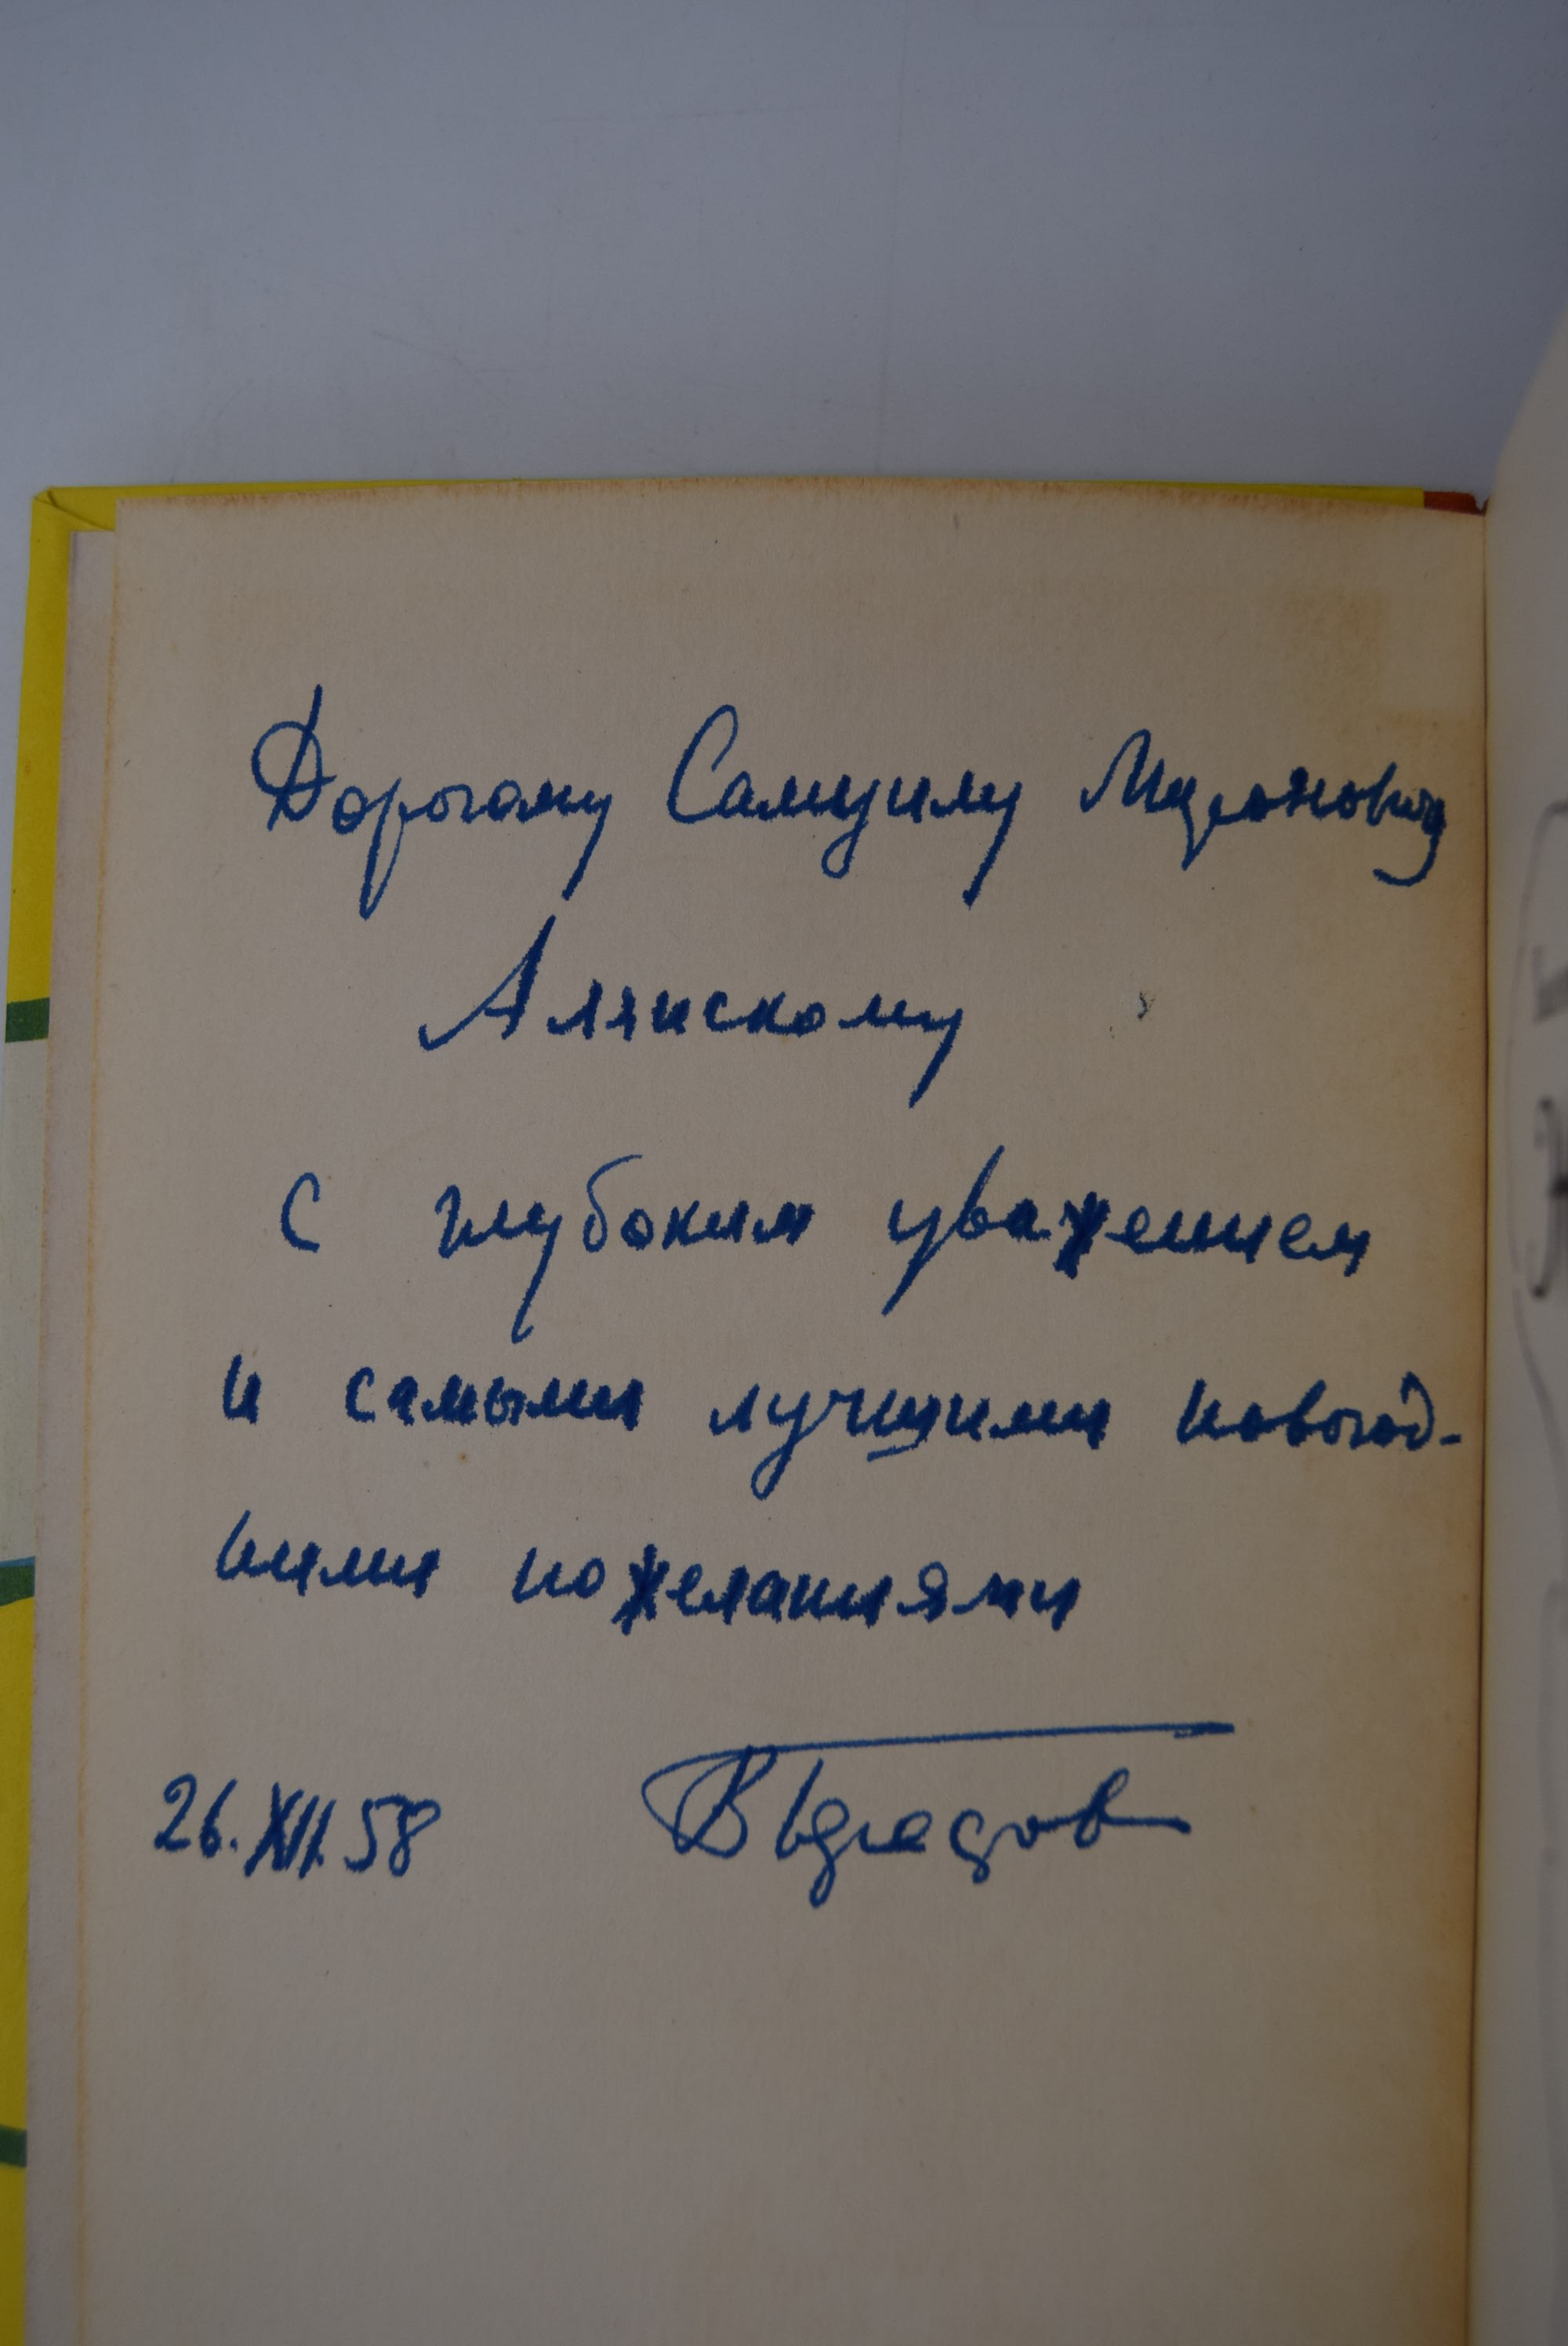 Дорогому Самуилу Мироновичу
Алянскому
с глубоким уважением
и самыми лучшими новогод-
ними пожеланиями
26.XII.58